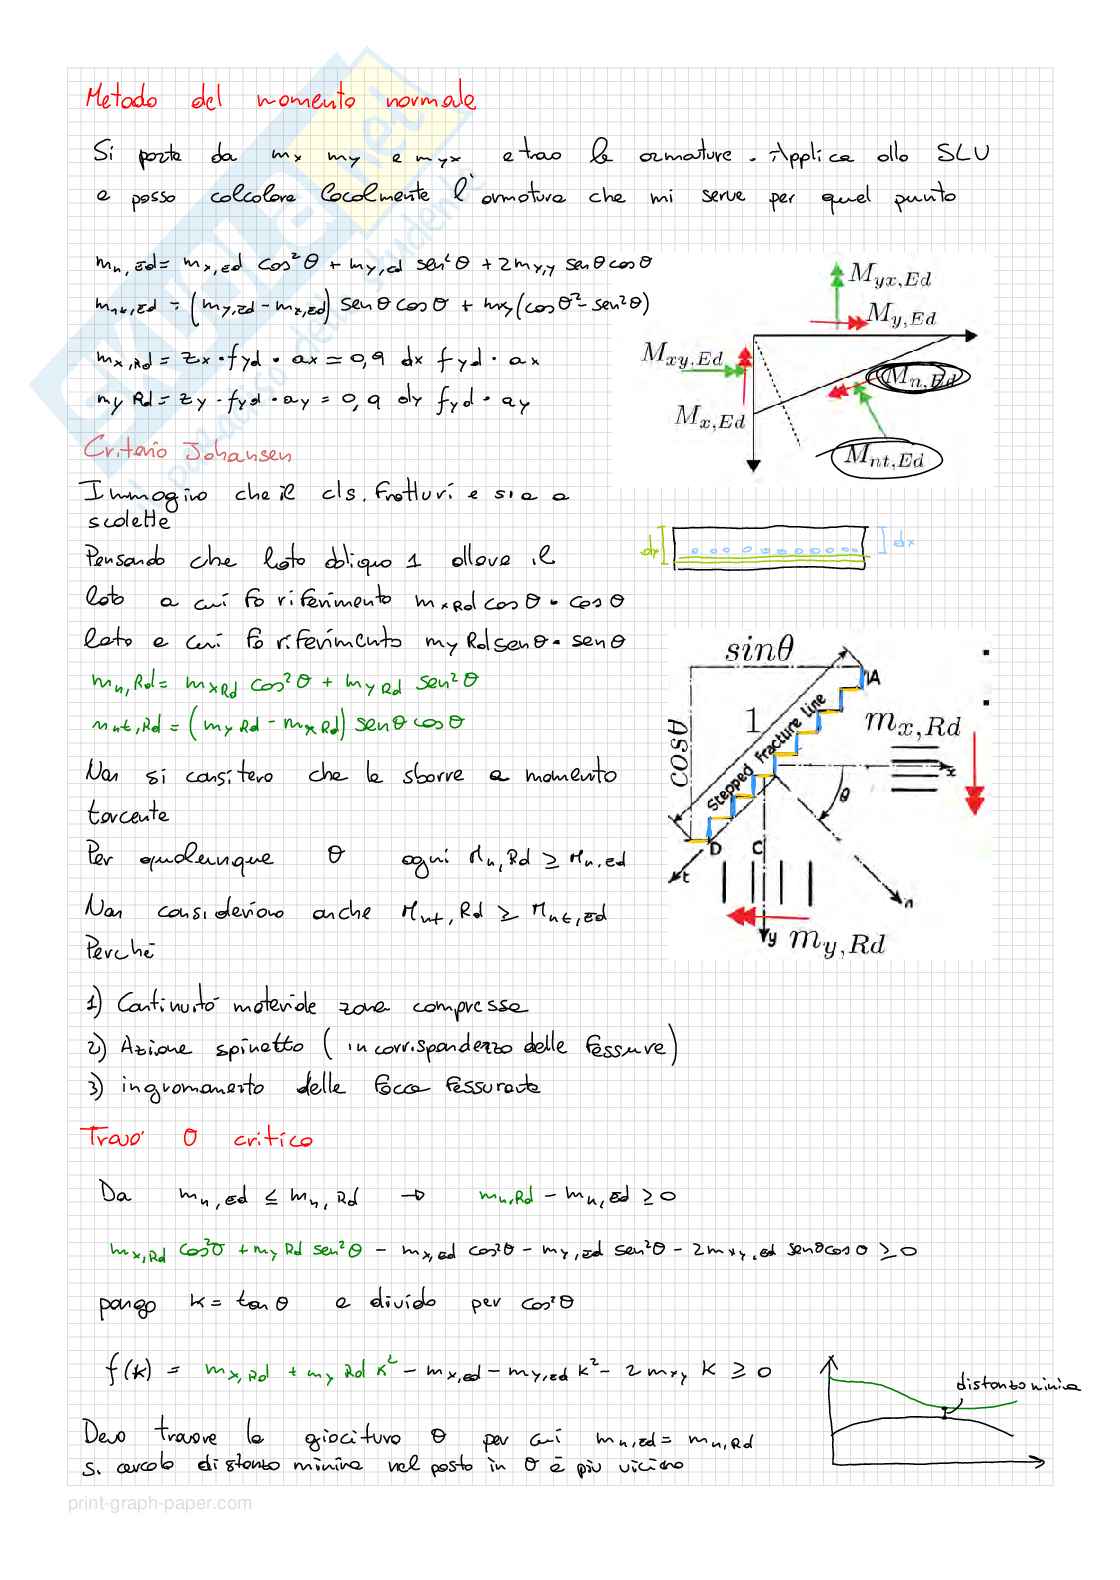 Metodo del momento normale
Si parte da mx my e myx e trao le armature. Applica allo SLU
e posso calcolare localmente l'armatura che mi serve per quel punto
mn,Ed = mx,Ed cos²θ + my,Ed sen²θ + 2mx,y senθcosθ
mnt,Ed = (my,Ed - mx,Ed) senθ cosθ + mxy(cosθ² - sen²θ)
mx,Rd = zx · fyd · ax = 0,9 dx fyd · ax
my Rd = zy · fyd · ay = 0,9 dy fyd · ay
Myx,Ed
My,Ed
Mxy,Ed
Mn,Ed
Mx,Ed
Mnt,Ed
Criterio Johansen
Immagino che il cls. Fratturi e sia a
scalette
dy
dx
Pensando che lato obliquo 1 allora il
lato a cui fo riferimento mxRd cosθ · cosθ
lato a cui fo riferimento my Rd senθ · senθ
mn,Rd = mxRd cos²θ + myRd sen²θ
mnt,Rd = (my Rd - mx Rd) senθ cosθ
Non si consitero che le sbarre a momento
torcente
Per qualunque θ ogni Mn,Rd ≥ Mn,Ed
Non consideriamo anche Mnt,Rd ≥ Mnt,Ed
Perché
sinθ
A
cosθ
1
Stepped Fracture line
mx,Rd
x
θ
D
C
t
n
y
my,Rd
1) Continuità materiale zona compressa
2) Azione spinotto (in corrispondenza delle fessure)
3) ingranamento delle facce fessurate
Trovo θ critico
Da mn,Ed ≤ mn,Rd → mn,Rd - mn,Ed ≥ 0
mx,Rd cos²θ + my Rd sen²θ - mx,Ed cos²θ - my,Ed sen²θ - 2mxy,Ed senθcosθ ≥ 0
pongo k = tanθ e divido per cos²θ
f(k) = mx,Rd + my Rd k² - mx,Ed - my,Ed k² - 2mxy k ≥ 0
distanza minima
Devo trovare la giacitura θ per cui mn,Ed = mn,Rd
Si cercola distanza minima nel posto in θ è più vicino
print-graph-paper.com